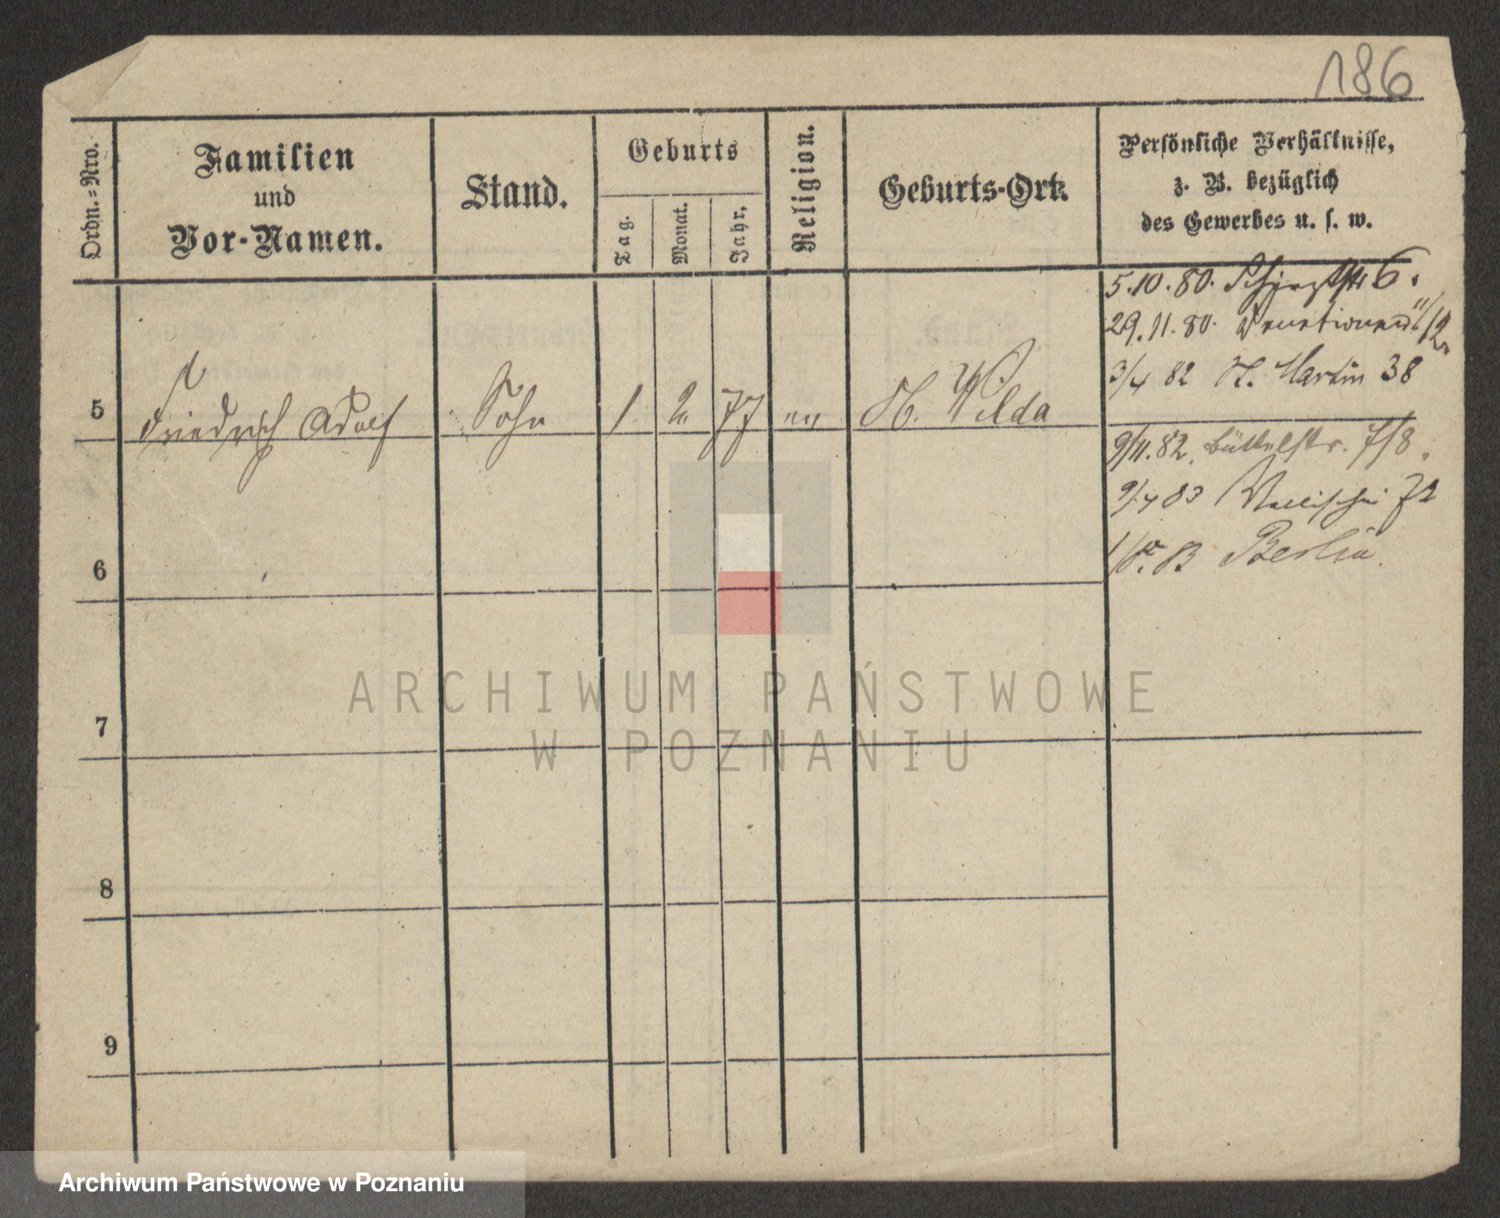 186
Ordn.-Nro.
Familien
und
Vor-Namen.
Stand.
Geburts
Tag.
Monat.
Jahr.
Religion.
Geburts-Ort.
Persönliche Verhältnisse,
z. B. bezüglich
des Gewerbes u. s. w.
5.10.80. 6.
29.11.80.
3/4 82 St. Martin 38
5 Friedrich Adolf Sohn 1 2 77 ev St. Wilda
9/11.82. Büttelstr. 7/8.
9/4 83 Wallischei 72
Berlin.
6
7
8
9
ARCHIWUM PAŃSTWOWE
W POZNANIU
Archiwum Państwowe w Poznaniu